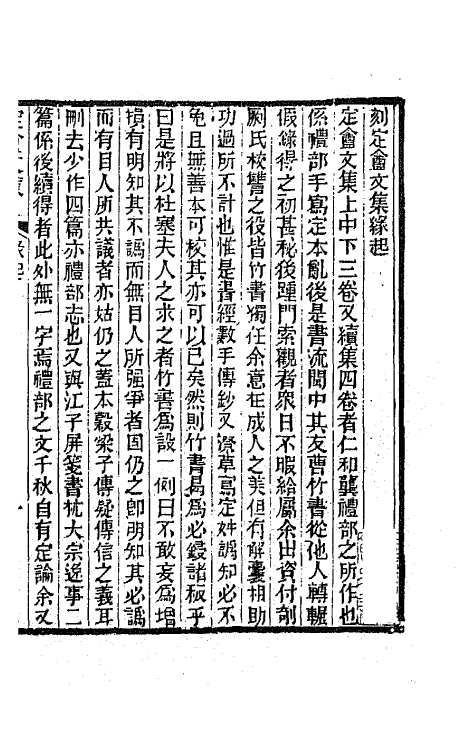 刻定盦文集緣起
定盦文集上中下三卷又續集四卷者仁和龔禮部之所作也
係禮部手寫定本亂後是書流閩中其友曹竹書從他人轉輾
假錄得之初甚秘後踵門索觀者眾日不暇給屬余出資付剞
劂氏校讐之役皆竹書獨任余意在成人之美但有解囊相助
功過所不計也惟是書經數手傳鈔又濳草寫定舛譌知必不
免且無善本可校其亦可以已矣然則竹書曷為必鋟諸板乎
曰是將以杜塞夫人之求之者竹書為設一例曰不敢妄為增
損有明知其不譌而無目人所強爭者固仍之卽明知其必譌
而有目人所共議者亦姑仍之蓋本穀梁子傳疑傳信之義耳
刪去少作四篇亦禮部志也又與江子屏箋書杭大宗逸事二
篇係後續得者此外無一字焉禮部之文千秋自有定論余又
緣起